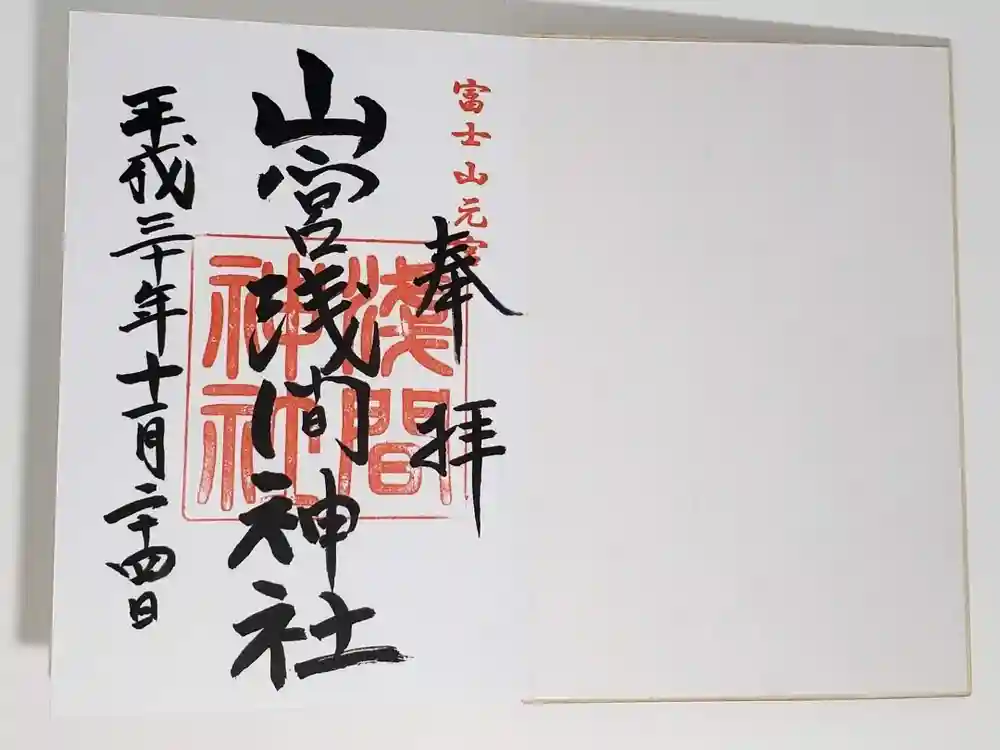 富士山元宮
奉拝
山宮浅間神社
淺間
神社
平成三十年十一月二十四日